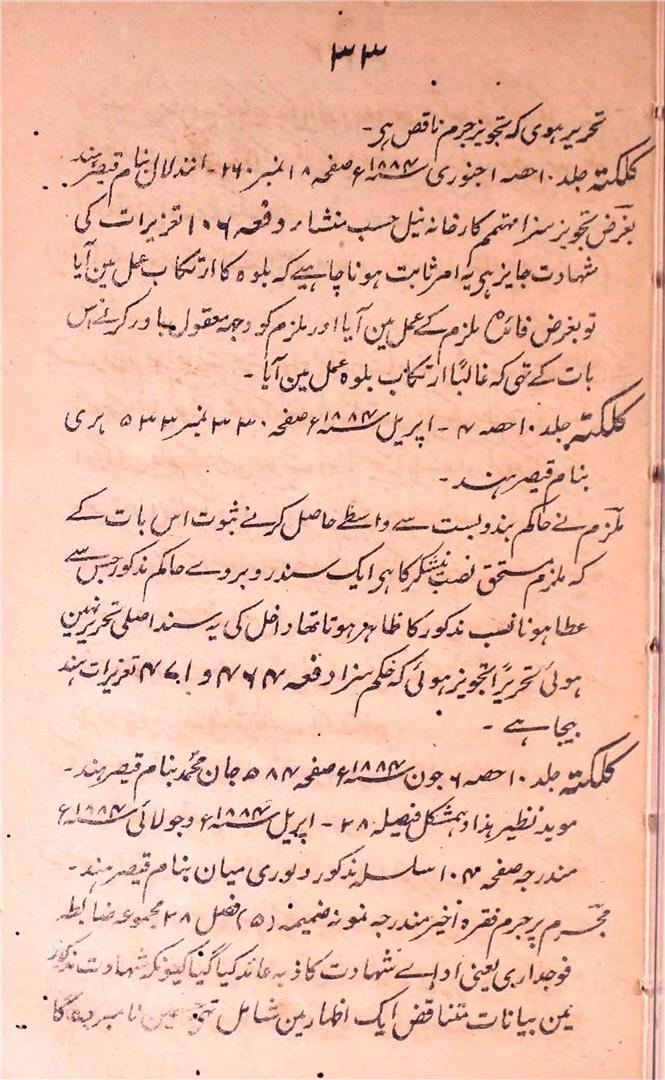 ۳۳
تحریر ہوی کہ تجویز جرم ناقص ہی۔
کلکتہ جلد ۱۰ حصہ ۱ جنوری سنہ ۱۸۸۴ء صفحہ ۱۸ نمبر ۲۶۰۔ انند لال بنام قیصر ہند
بغرض تجویز سزا مہتمم کارخانہ نیل حسب منشاء دفعہ ۱۰۶ تعزیرات کی
شہادت جایز ہی یہ امر ثابت ہونا چاہیے کہ بلوہ کا ارتکاب عمل مین آیا
تو بغرض فائدہ ملزم کے عمل مین آیا اور ملزم کو وجہ معقول باور کرنے اس
بات کے تہی کہ غالبًا ارتکاب بلوہ عمل مین آیا۔
کلکتہ جلد ۱۰ حصہ ۴۔ اپریل سنہ ۱۸۸۴ء صفحہ ۳۳۰ نمبر ۵۳۳ ہری
بنام قیصر ہند۔
ملزم نے حاکم بندوبست سے واسطے حاصل کرنے ثبوت اس بات کے
کہ ملزم مستحق نصب کا ہی ایک سند روبروے حاکم مذکور جس سے
عطا ہونا نسب مذکور کا ظاہر ہوتا تھا داخل کی یہ سند اصلی تحریر نہین
ہوئی تحریرًا تجویز ہوئی کہ حکم سزا دفعہ ۴۶۴ و ۴۷۱ تعزیرات ہند
بیجا ہے۔
کلکتہ جلد ۱۰ حصہ ۶ جون سنہ ۱۸۸۴ء صفحہ ۵۸۴ جان محمد بنام قیصر ہند۔
موید نظیر ہذا و ہمشکل فیصلہ ۲۸۔ اپریل سنہ ۱۸۸۴ء و جولائی سنہ ۱۸۸۴ء
مندرجہ صفحہ ۱۰۴ سلسلہ مذکور دنوری میان بنام قیصر ہند۔
مجرم پر جرم فقرہ اخیر مندرجہ نمونہ ضمیمہ (۵) فصل ۲۸ مجموعہ ضابطہ
فوجداری یعنی اداے شہادت کاذبہ عائد کیا گیا کیونکہ شہادت مذکور
مین بیانات متناقض ایک اظہار مین شامل تہی مین نامبردہ گا